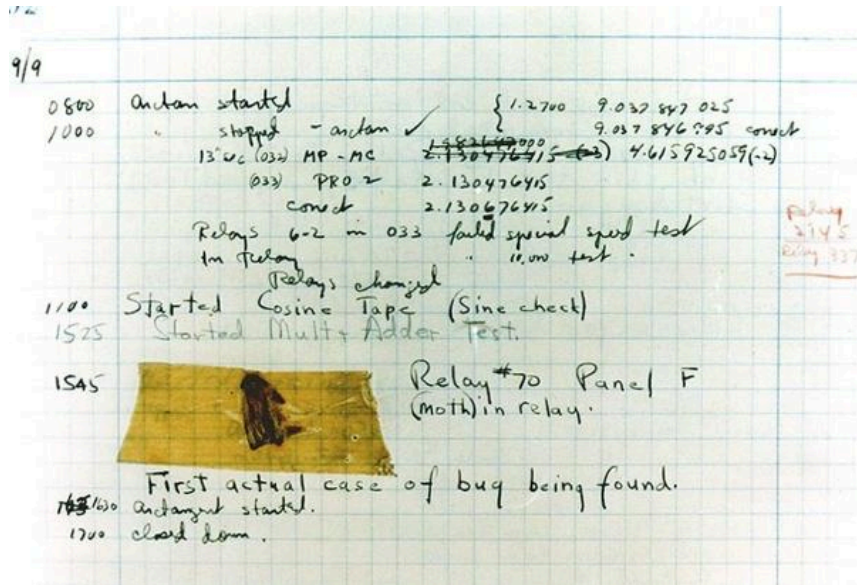 9/9
0800 arctan started { 1.2700 9.037 847 025
1000 " stopped - arctan ✓ 9.037 846 995 correct
13"uc (032) MP - MC 2.130476415 (-3) 4.615925059(-2)
(033) PRO 2 2.130476415
correct 2.130676415
Relays 6-2 in 033 failed special speed test
In Relay " 10,000 test .
Relays changed
Relay
Relay
1100 Started Cosine Tape (Sine check)
1525 Started Mult + Adder Test.
1545 Relay #70 Panel F
(moth) in relay.
First actual case of bug being found.
1630 arctangent started.
1700 closed down.